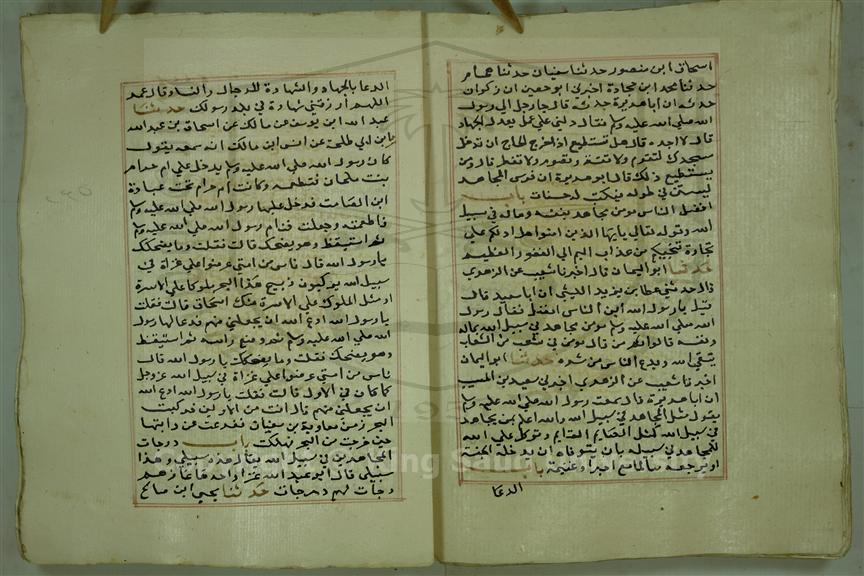 اسحاق ابن منصور حدثنا سفيان حدثنا همام
حدثنا محمد ابن جحادة اخبرني ابو حصين ان ذكوان
حدثه ان ابا هريرة حدثه قال جا رجل الى رسول
الله صلي الله عليه وسلم فقال دلني علي عمل يعدل الجهاد
قال لا اجده قال هل تستطيع اذا خرج المجاهد ان تدخل
مسجدك فتقوم ولا تفتر وتصوم ولا تفطر قال ومن
يستطيع ذلك قال ابو هريرة ان فرس المجاهد
ليستن في طوله فيكتب له حسنات باب
افضل الناس مومن مجاهد بنفسه وماله في سبيل
الله وقوله تعالي يايها الذين امنوا هل ادلكم علي
تجارة تنجيكم من عذاب اليم الي الفوز العظيم
حدثنا ابو اليمان قال اخبرنا شعيب عن الزهري
قال حدثني عطا بن يزيد الليثي ان ابا سعيد قال
قيل يا رسول الله اين الناس افضل فقال رسول
الله صلي الله عليه وسلم مومن مجاهد في سبيل الله بماله
ونفسه قالوا ثم من قال مومن في شعب من الشعاب
يتقي الله ويدع الناس من شره حدثنا ابو اليمان
اخبرنا شعيب عن الزهري اخبرني سعيد بن المسيب
ان ابا هريرة قال سمعت رسول الله صلي الله عليه وسلم
يقول مثل المجاهد في سبيل الله والله اعلم بمن يجاهد
في سبيل الله كمثل الصايم القايم وتوكل علي الله
للمجاهد في سبيله بان يتوفاه ان يدخله الجنة
او يرجعه سالما مع اجر او غنيمة باب
الدعا
الدعا بالجهاد والشهادة للرجال والنسا وقال عمر
اللهم ارزقني شهادة في بلد رسولك حدثنا
عبد الله ابن يوسف عن مالك عن اسحاق بن عبد الله
ابن ابي طلحة عن انس ابن مالك انه سمعه يقول
كان رسول الله صلي الله عليه وسلم يدخل علي ام حرام
بنت ملحان فتطعمه وكانت ام حرام تحت عبادة
ابن الصامت فدخل عليها رسول الله صلي الله عليه وسلم
فاطعمته وجعلت فنام رسول الله صلي الله عليه وسلم
ثم استيقظ وهو يضحك قالت فقلت وما يضحكك
يا رسول الله قال ناس من امتي عرضوا علي غزاة في
سبيل الله يركبون ثبج هذا البحر ملوكا علي الاسرة
او مثل الملوك علي الاسرة شك اسحاق قالت فقلت
يا رسول الله ادع الله ان يجعلني منهم فدعا لها رسول
الله صلي الله عليه وسلم ثم وضع راسه ثم استيقظ
وهو يضحك فقلت وما يضحكك يا رسول الله قال
ناس من امتي عرضوا علي غزاة في سبيل الله عز وجل
كما كان في الاول قالت فقلت يا رسول الله ادع الله
ان يجعلني منهم قال انت من الاولين فركبت
البحر زمن معاوية بن سفيان فصرعت عن دابتها
حين خرجت من البحر فهلكت باب درجات
المجاهدين في سبيل الله يقال هذه سبيلي وهذا
سبيلي قال ابو عبد الله غزا واحدها غاز هم
درجات لهم درجات حدثنا يحيي ابن صالح